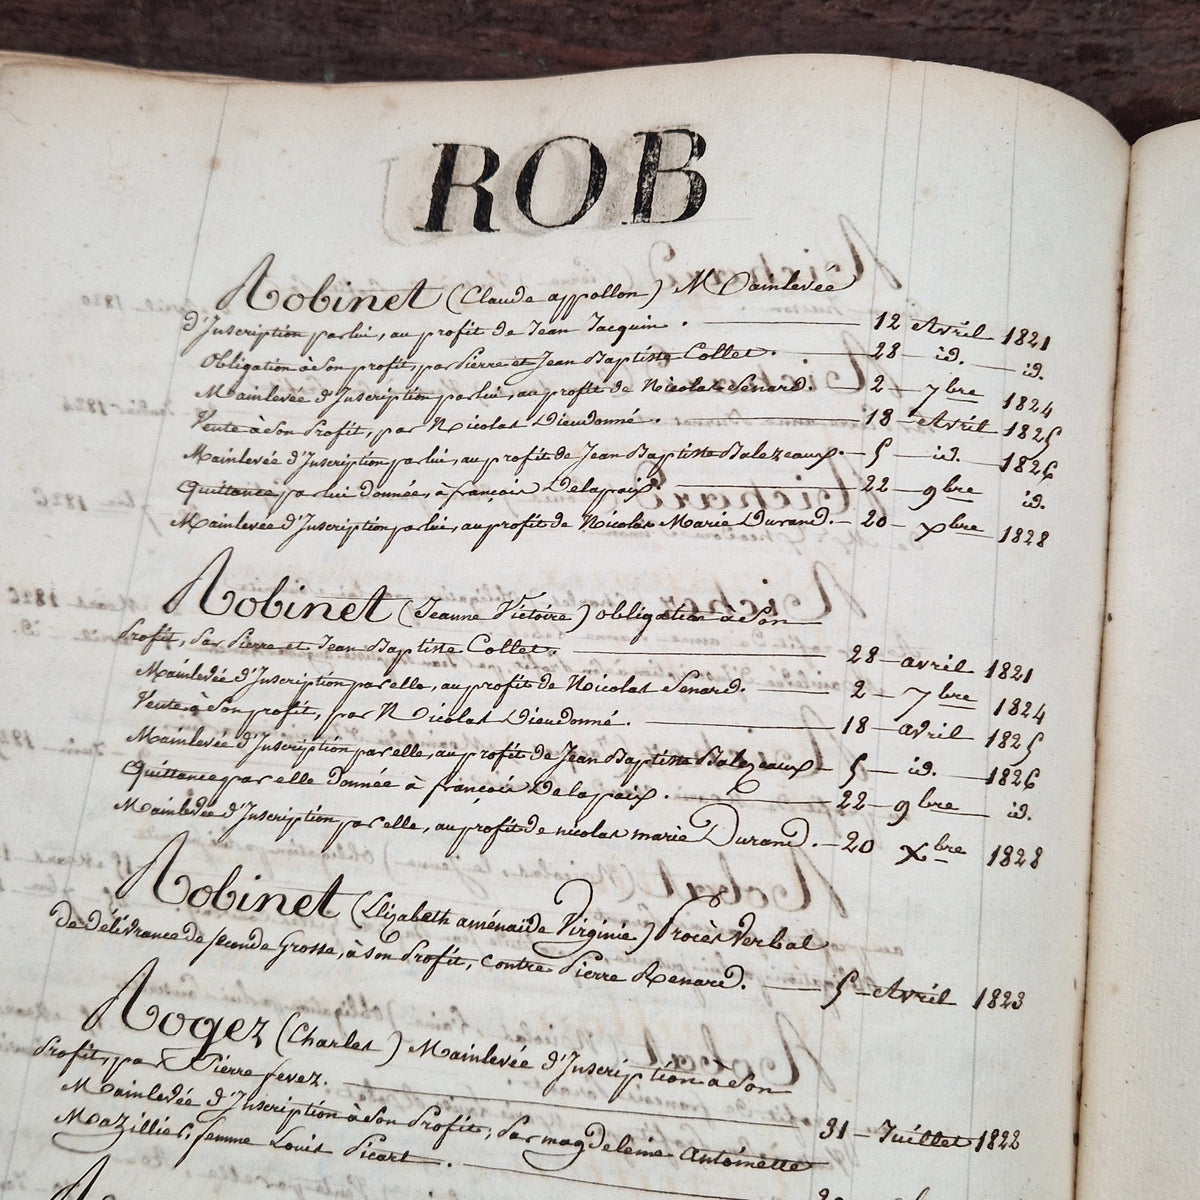 ROB
Robinet (Claude appollon) Mainlevée
d'Inscription par lui, au profit de Jean Jacquin. — 12 Avril 1821
Obligation à Son profit, par Pierre et Jean Baptiste Collet. — 28 — id. — id.
Mainlevée d'Inscription par lui, au profit de Nicolas Senard. — 2 — 7bre 1824
Vente à Son Profit, par Nicolas Dieudonné. — 18 — Avril 1825
Mainlevée d'Inscription par lui, au profit de Jean Baptiste Balezeaux. — 5 — id. — 1826
Quittance par lui donnée, à françois Delapaix. — 22 — 9bre id.
Mainlevée d'Inscription par lui, au profit de Nicolas Marie Durand. — 20 — Xbre 1828
Robinet (Jeanne Victoire) obligation à Son
Profit, Par Pierre et Jean Baptiste Collet. — 28 — avril 1821
Mainlevée d'Inscription par elle, au profit de Nicolas Senard. — 2 — 7bre 1824
Vente à Son profit, par Nicolas Dieudonné. — 18 — avril 1825
Mainlevée d'Inscription par elle, au profit de Jean Baptiste Balezeaux — 5 — id. — 1826
Quittance par elle Donnée à françois Delapaix. — 22 — 9bre id.
Mainlevée d'Inscription, par elle, au profit de nicolas marie Durand. — 20 Xbre 1828
Robinet (Elizabeth aménaïde Virginie) Procès Verbal
de délivrance de seconde Grosse, à Son Profit, contre Pierre Renard. — 5 — Avril 1823
Rogez (Charles) Mainlevée d'Inscription à Son
Profit, par Pierre fevez. — 31 — Juillet 1822
Mainlevée d'Inscription à Son Profit, Par magdeleine Antoinette
Mazillier, femme Louis Picart. —